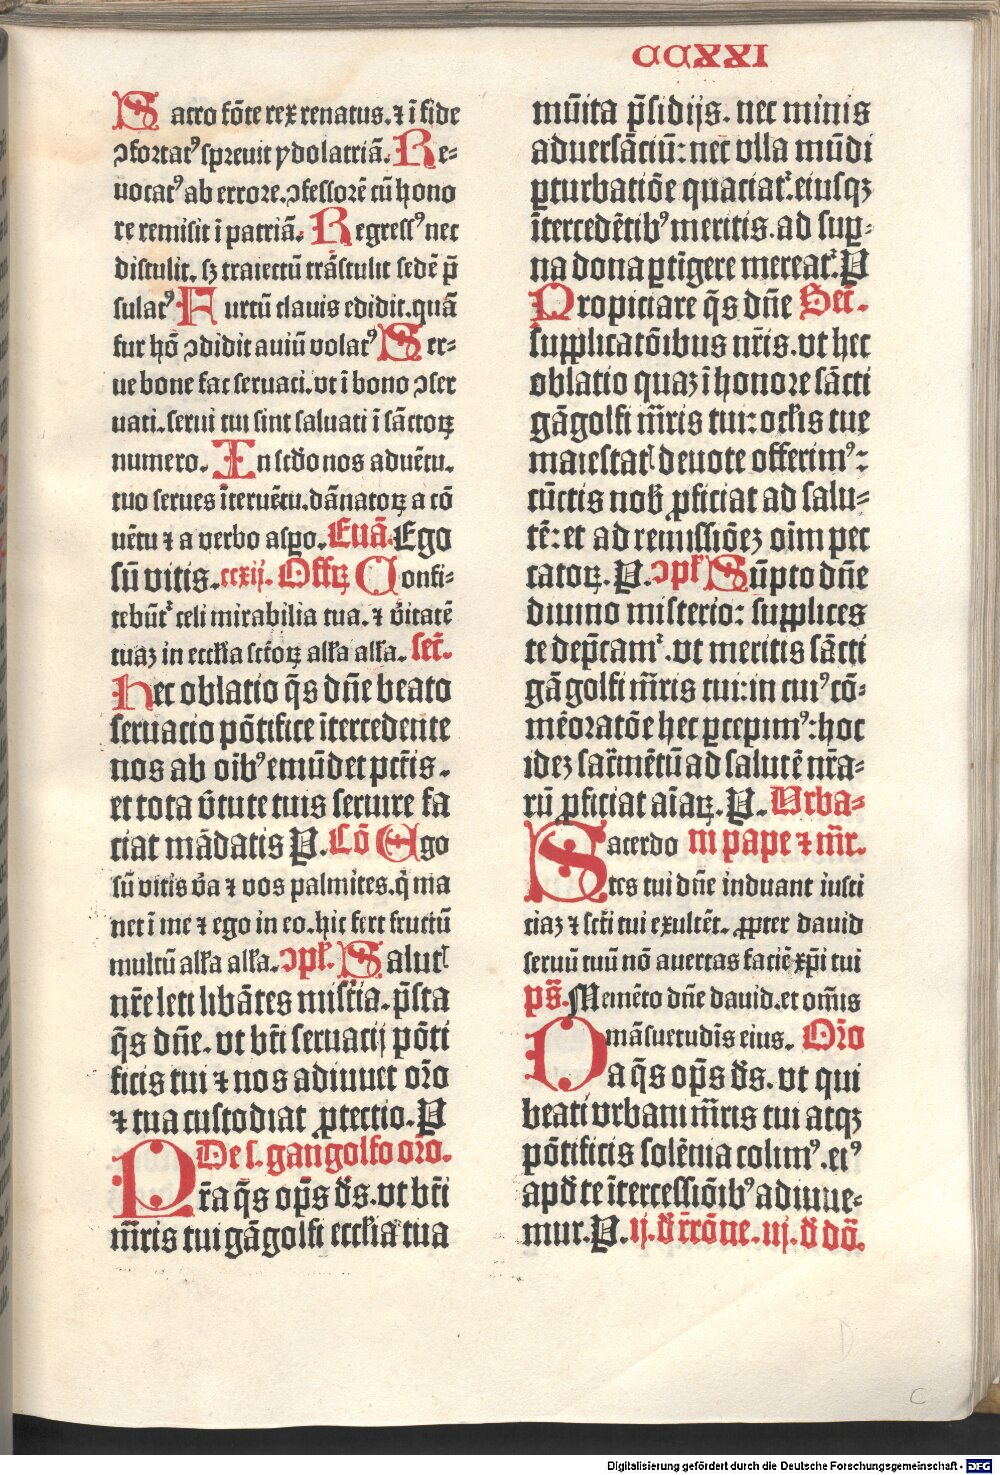 CCXXI
Sacro fōte rex renatus. ⁊ ī fide
ↄfortatꝰ spreuit ydolatriā. Re⸗
uocatꝰ ab errore. ↄfessorē cū hono
re remisit ī patriā. Regressꝰ nec
distulit. sꝫ traiectū trāstulit sedē p̄
sulatꝰ Furtū clauis edidit. quā
fur hō ↄdidit auiū volatꝰ Ser⸗
ue bone fac seruaci. vt ī bono ↄser
uati. serui tui sint saluati ī sāctoꝝ
numero. In scd̄o nos aduētu.
tuo serues īteruētu. dānatoꝝ a cō
uētu ⁊ a verbo aspo. Euā. Ego
sū vitis. ccxij. Offꝝ Confi⸗
tebūtᷣ celi mirabilia tua. ⁊ v̄itatē
tuaꝫ in eccłia sctōꝝ alła alła. secᷣ.
Hec oblatio q̄s dn̄e beato
seruacio pōtifice ītercedente
nos ab oīb’ emūdet pctīs.
et tota v̄tute tuis seruire fa
ciat mādatis P. Cō Ego
sū vitis v̄a ⁊ vos palmites. q̄ ma
net ī me ⁊ ego in eo. hic fert fructū
multū alła alła. ↄpł. Salutꝭ
nr̄e leti libātes mistīia. p̄sta
q̄s dn̄e. vt bt̄i seruacij pōti
ficis tui ⁊ nos adiuuet or̄o
⁊ tua custodiat ꝓtectio. P
De s. gangolfo or̄o.
Pr̄a q̄s op̄s ds̄. vt bt̄i
mr̄is tui gāgolfi eccłia tua
mūita p̄sidijs. nec minis
aduersāciū: nec vlla mūdi
ꝑturbatiōe quaciatᷣ. eiusqꝫ
ītercedētibꝰ meritis. ad sup⸗
na dona ꝑtīgere mereatᷣ. P
Propiciare q̄s dn̄e Secᷣ.
supplicatōibus nr̄is. vt hec
oblatio quaꝫ ī honore sācti
gāgolfi mr̄is tui: oclis tue
maiestatꝭ deuote offerimꝰ:
cūctis nob̄ ꝓficiat ad salu⸗
tē: et ad remissiōeꝫ oīm pec
catoꝝ. P. ↄpł Sūpto dn̄e
diuino misterio: supplices
te dep̄camᷣ. vt meritis sācti
gāgolfi mr̄is tui: in cuiꝰ cō⸗
mēoratōe hec ꝑcepimꝰ: hoc
ideꝫ sacr̄mētū ad salutē nr̄a⸗
rū ꝓficiat aīaꝝ. P. Vrba⸗
Sacerdo ni pape ⁊ mr̄.
tes tui dn̄e induant iusti
ciaꝫ ⁊ scti tui exultēt. ꝓpter dauid
seruū tuū nō auertas faciē xp̄i tui
ps̄. Memēto dn̄e dauid. et om̄is
māsuetudīs eius. Or̄o
Da q̄s op̄s ds̄. vt qui
beati vrbani mr̄is tui atqꝫ
pōtificis solēnia colimꝰ. eiꝰ
apd̄ te ītercessiōibꝰ adiuue⸗
mur. P. ij. d̄ r̄rōne. iij. d̄ dō.
C
Digitalisierung gefördert durch die Deutsche Forschungsgemeinschaft - DFG